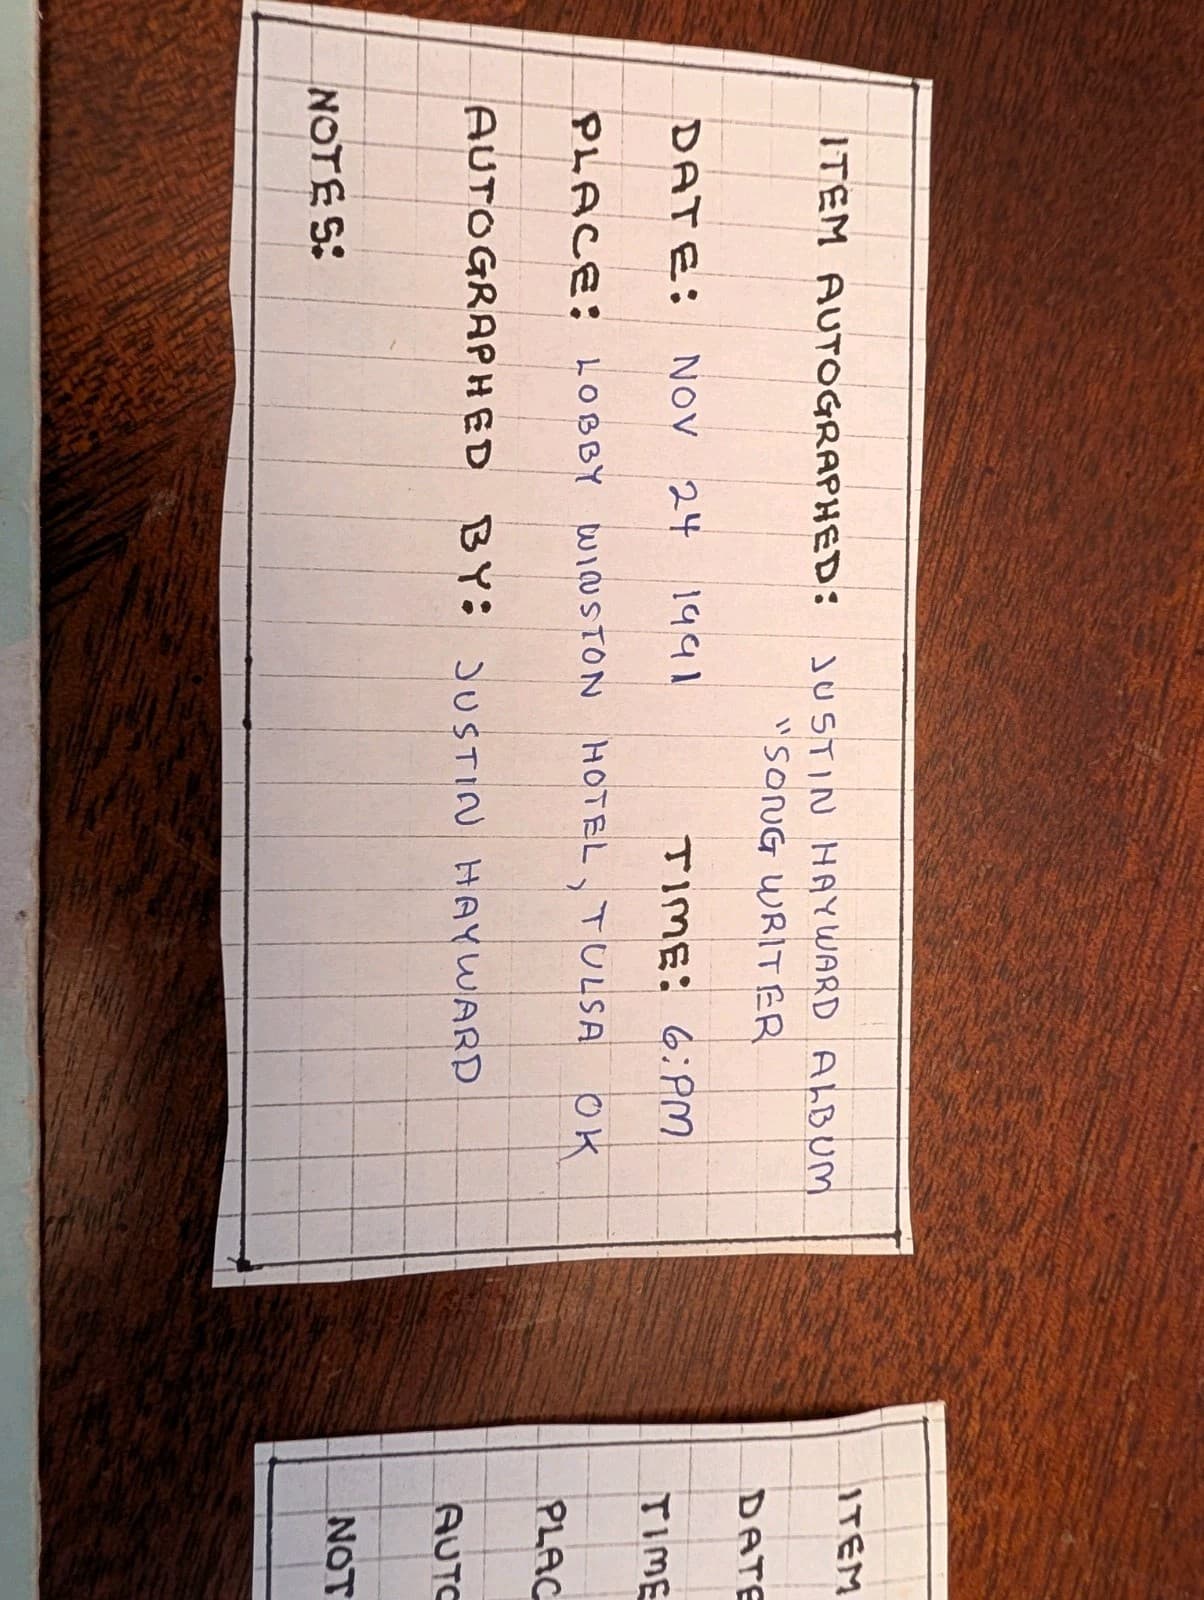 ITEM AUTOGRAPHED: JUSTIN HAYWARD ALBUM
"SONG WRITER
DATE: NOV 24 1991 TIME: 6:PM
PLACE: LOBBY WINSTON HOTEL, TULSA OK
AUTOGRAPHED BY: JUSTIN HAYWARD
NOTES:
ITEM
DATE
TIME
PLAC
AUTO
NOT